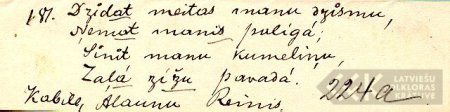 187. Dzīdat meitas manu dzīsmu,
Ņemat manis pulīgá;
Sīnit manu kumeliņu,
Zaļa zīžu pavadá.
Kabile, Alaunu Reinis. 224a
LATVIEŠU
FOLKLORAS
KRĀTUVE